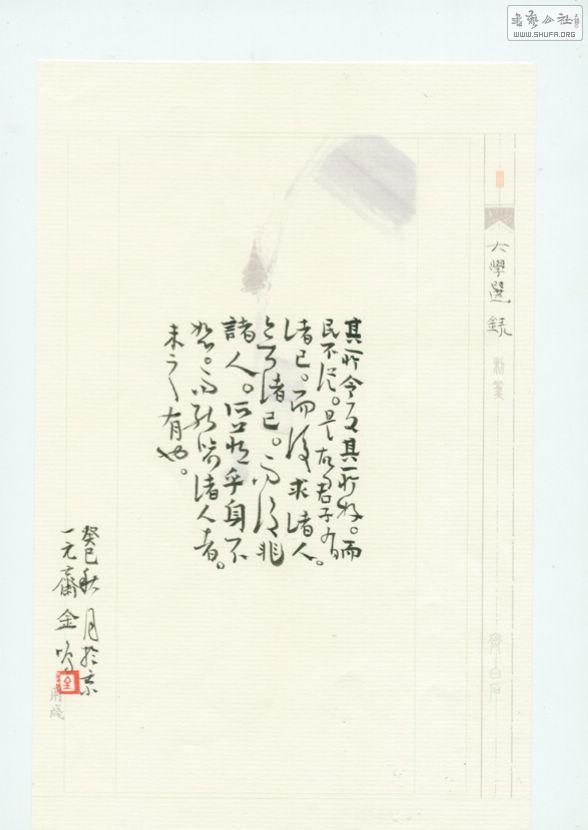 書藝公社
WWW.SHUFA.ORG
大學選錄
齊白石
其所令反其所好。而
民不從。是故君子有
诸己。而後求诸人。
无诸己。而後非
諸人。所藏乎身不
恕。而能喻诸人者。
未之有也。
癸巳秋月於京
一元齋金鳴
用箋